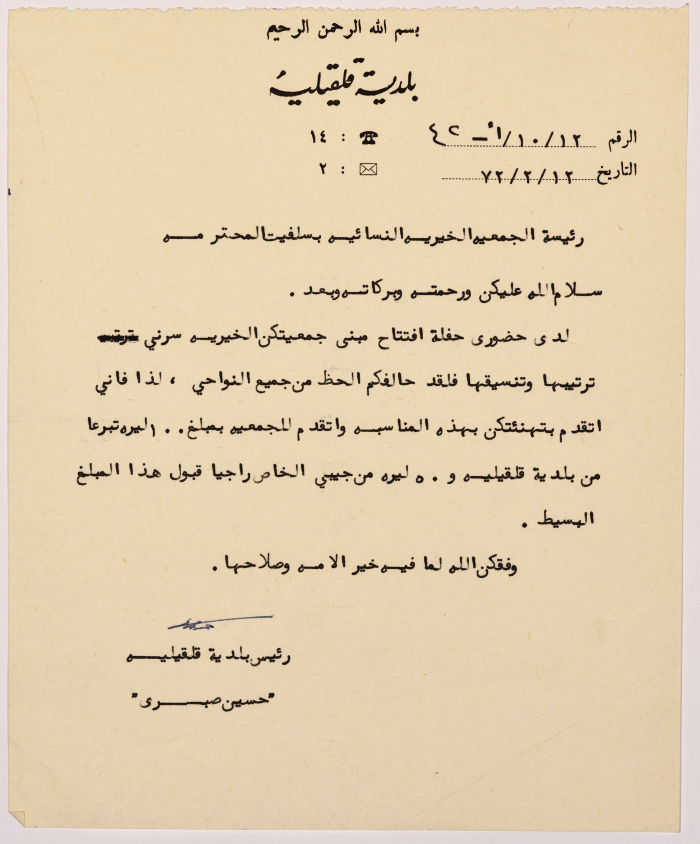 بسم الله الرحمن الرحيم
بلدية قلقيلية
الرقم ١٢/١٠/
☎ : ١٤
التاريخ ٧٢/٢/١٢
✉ : ٢
رئيسة الجمعيه الخيريه النسائيه بسلفيت المحترمه
سلام الله عليكن ورحمته وبركاته وبعد .
لدى حضورى حفلة افتتاح مبنى جمعيتكن الخيريه سرني
ترتيبها وتنسيقها فلقد حالفكم الحظ من جميع النواحي ، لذا فاني
اتقدم بتهنئتكن بهذه المناسبه واتقدم للجمعيه بمبلغ ١٠٠ ليره تبرعا
من بلدية قلقيليه و ٥٠ ليره من جيبي الخاص راجيا قبول هذا المبلغ
البسيط .
وفقكن الله لما فيه خير الامه وصلاحها .
رئيس بلدية قلقيليه
"حسين صبرى"